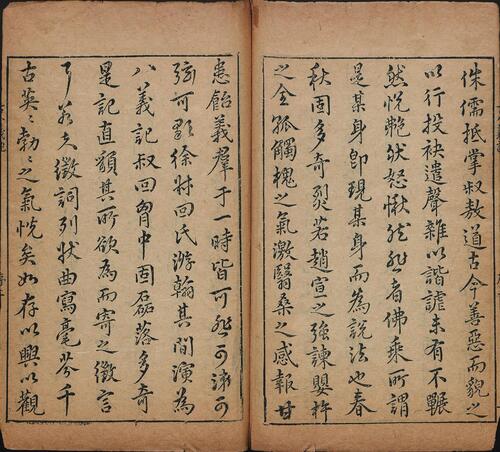 侏儒抵掌叔敖道古今善惡而貌之
以行投袂遣聲雜以諧謔未有不囅
然悅艷然怒愀然悲者佛乘所謂
是某身卽現某身而為說法也春
秋固多奇烈若趙宣之強諫嬰杵
之全孤觸槐之氣激翳桑之感報甘
患飴義羣于一時皆可悲可涕可
弦可歌徐叔回氏游翰其間演為
八義記叔回胷中固磊落多奇
是記直頟其所欲為而寄之徵言
了若夫徵詞列狀曲寫毫芬千
古英〻勃〻之氣恍矣如存以興以觀